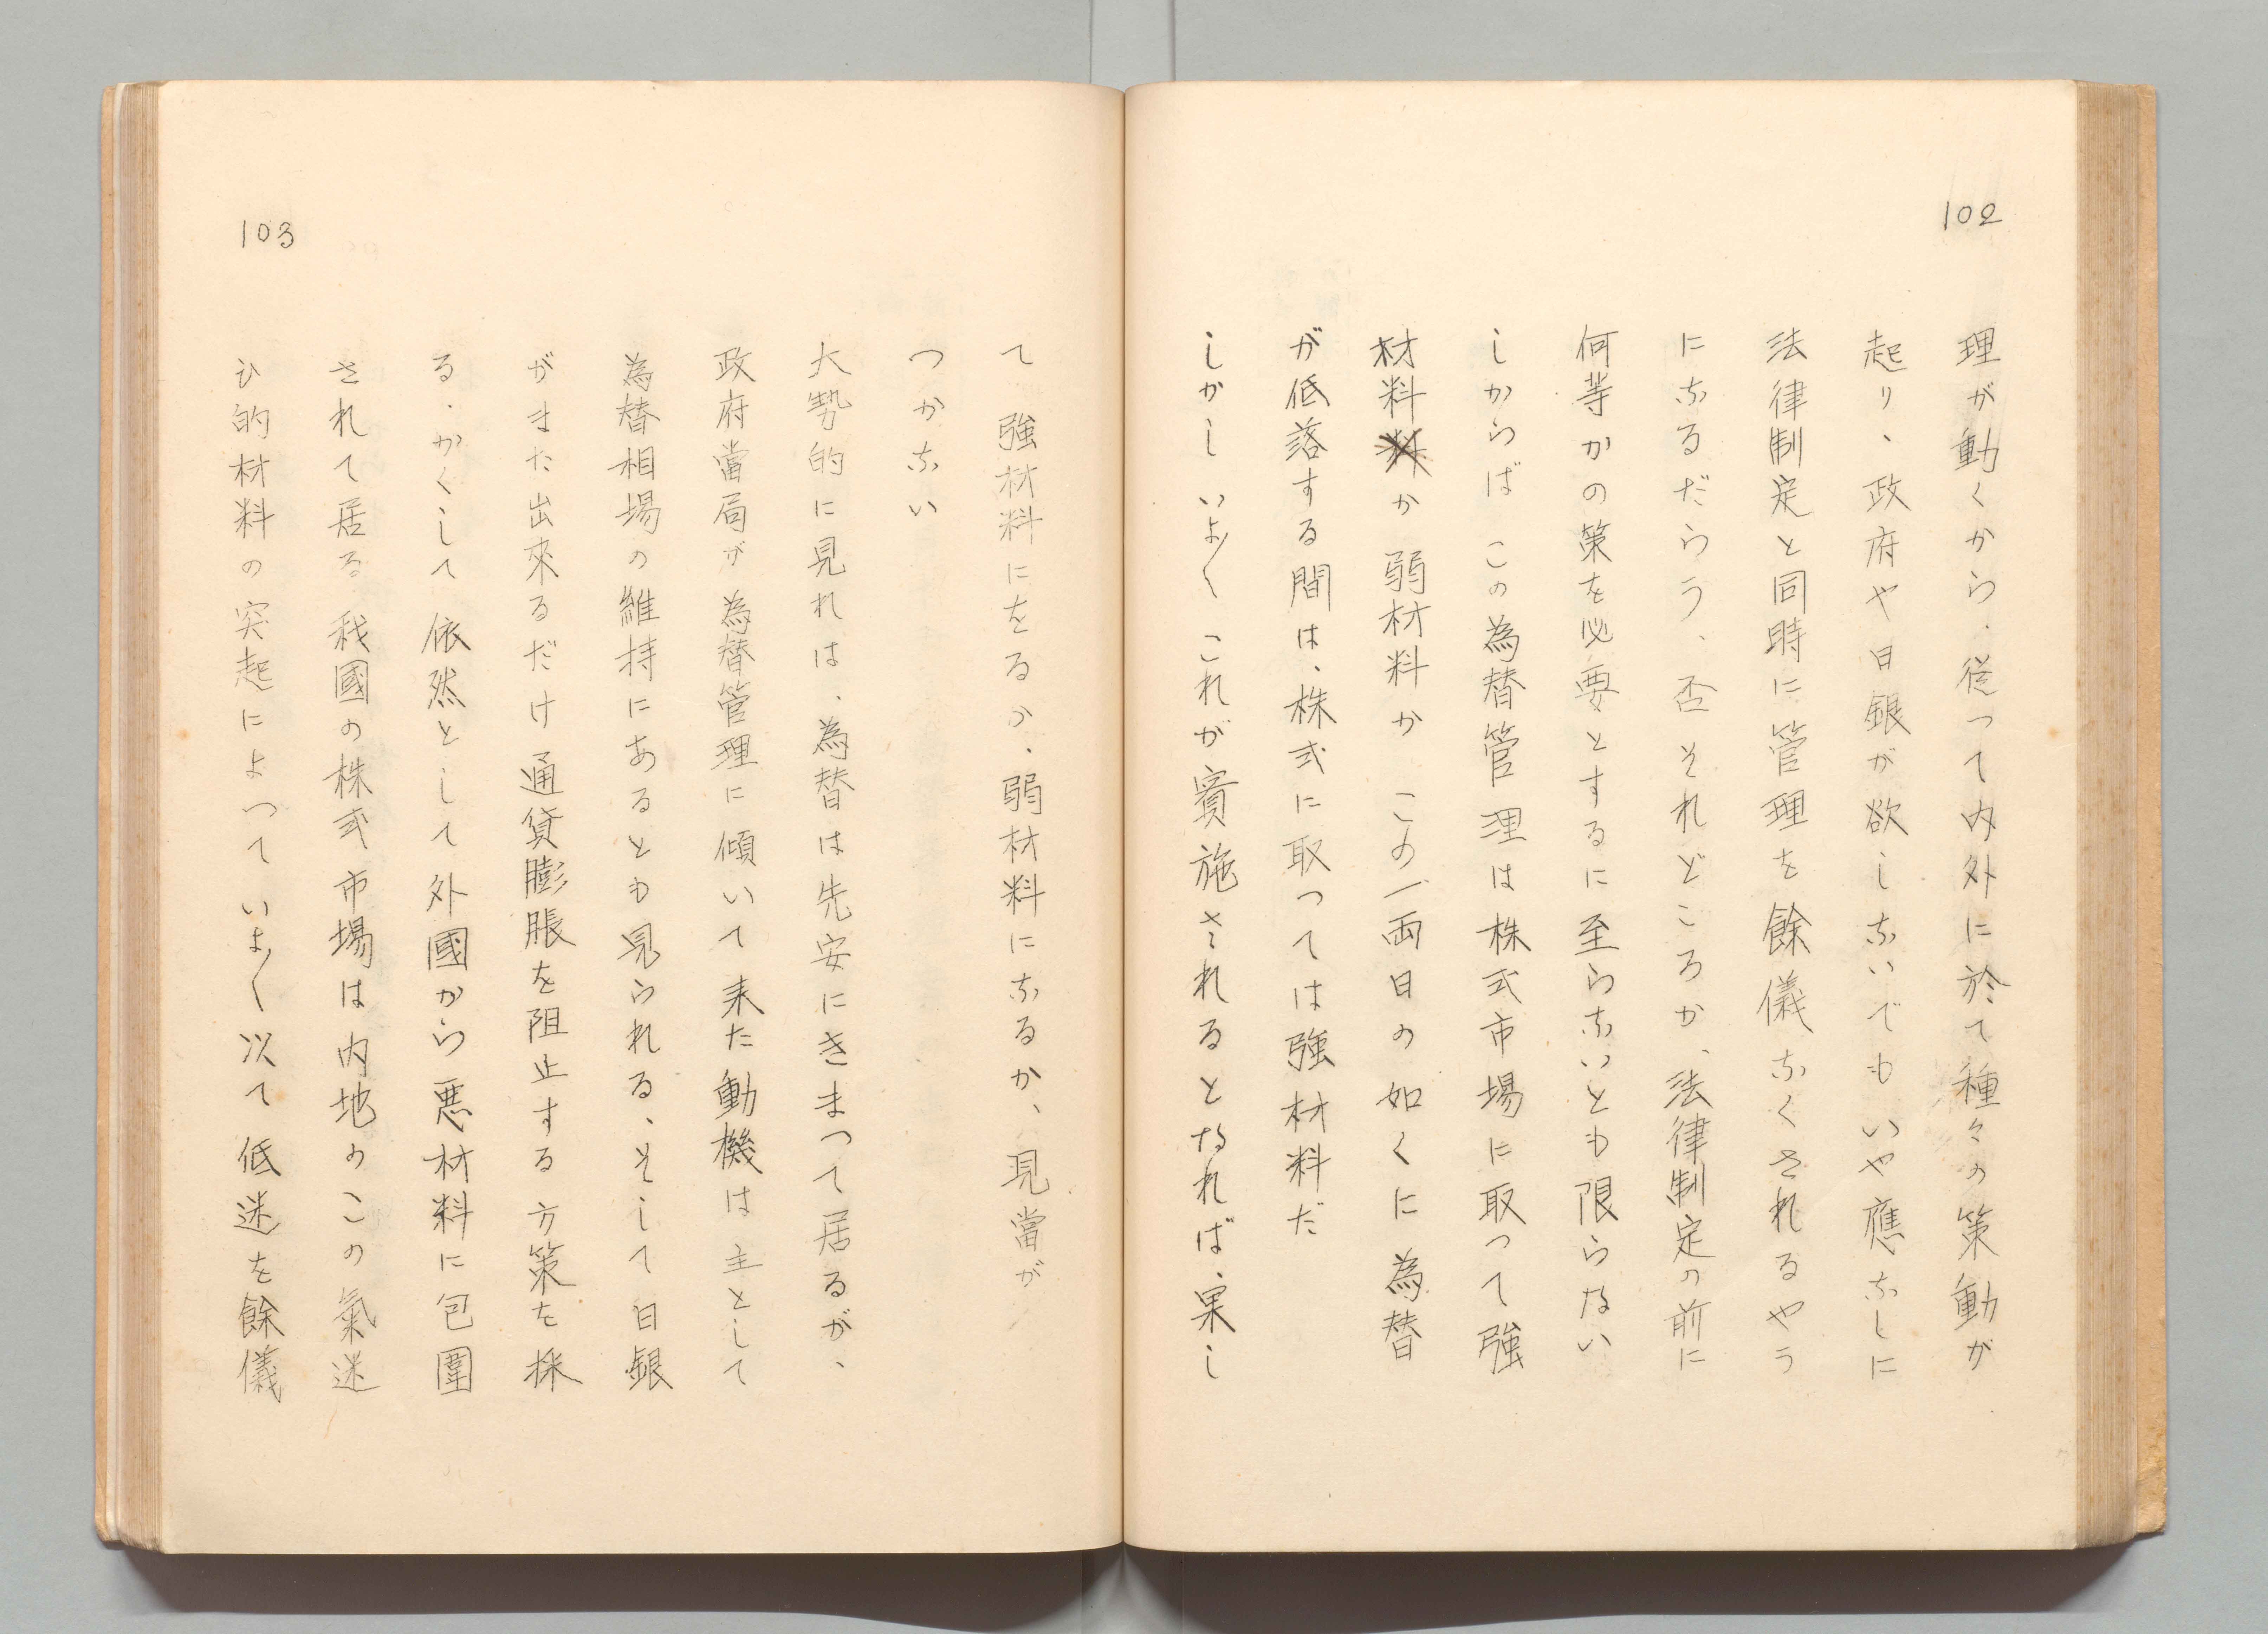 102
理が動くから、従って内外に於て種々の策動が
起り、政府や日銀が欲しないでもいや應なしに
法律制定と同時に管理を餘儀なくされるやう
になるだらう、否それどころか、法律制定の前に
何等かの策を必要とするに至らないとも限らない
しからばこの為替管理は株式市場に取って強
材料か弱材料かこの一両日の如くに為替
が低落する間は、株式に取つては強材料だ
しかしいよ〱これが實施されるとなれば、果し
て強材料になるか、弱材料になるか、見當が
つかない
大勢的に見れは、為替は先安にきまつて居るが、
政府當局が為替管理に傾いて来た動機は主として
為替相場の維持にあるとも見られる、そして日銀
がまた出來るだけ通貨膨脹を阻止する方策を採
る、かくして依然として外國から悪材料に包圍
されて居る我國の株式市場は内地のこの氣迷
ひ的材料の突起によつていよ〱以て低迷を餘儀
103